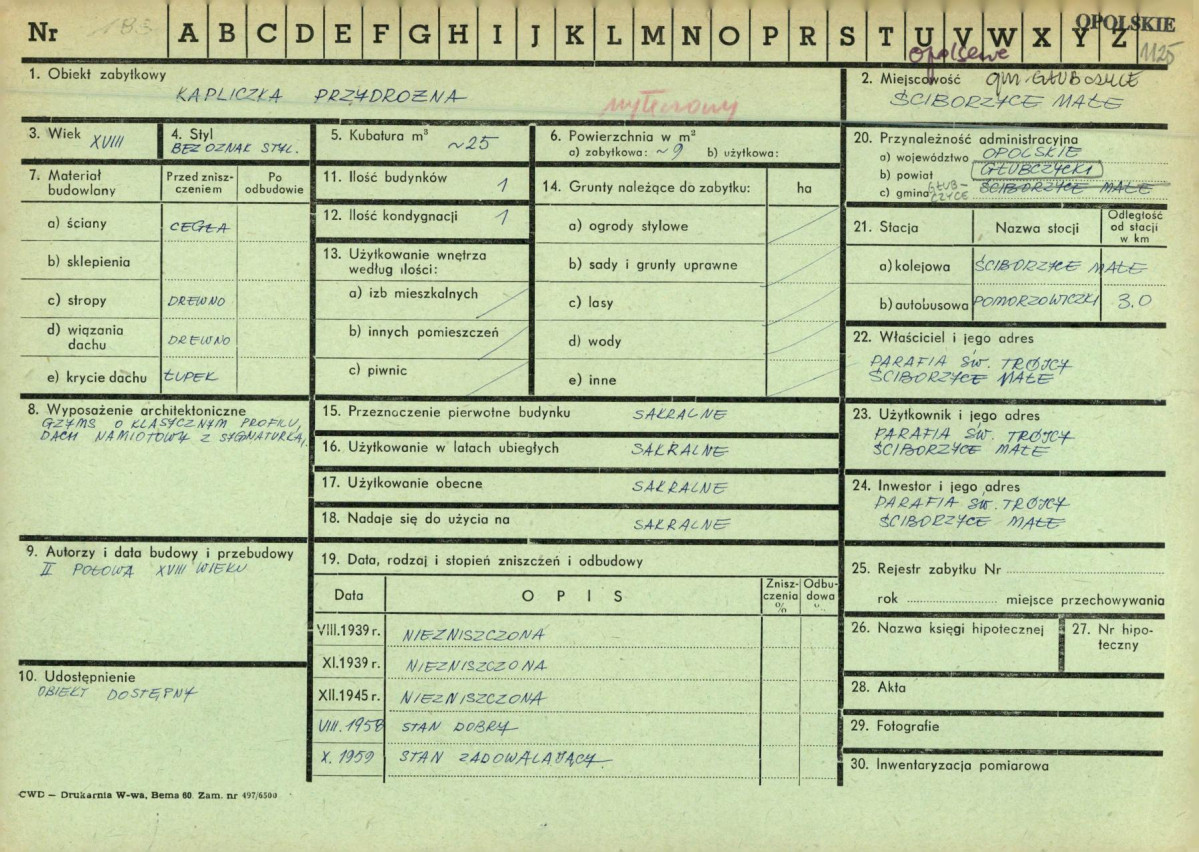 Nr 183 A B C D E F G H I J K L M N O P R S T U V W X Y Z
OPOLSKIE
1125
opolskie
1. Obiekt zabytkowy
KAPLICZKA PRZYDROŻNA
2. Miejscowość gm. GŁUBCZYCE
ŚCIBORZYCE MAŁE
3. Wiek XVIII
4. Styl
BEZ OZNAK STYL.
5. Kubatura m³ ~25
6. Powierzchnia w m²
a) zabytkowa: ~9 b) użytkowa:
7. Materiał budowlany
Przed znisz-
czeniem
Po
odbudowie
a) ściany CEGŁA
b) sklepienia
c) stropy DREWNO
d) wiązania
dachu DREWNO
e) krycie dachu ŁUPEK
8. Wyposażenie architektoniczne
GZYMS O KLASYCZNYM PROFILU,
DACH NAMIOTOWY Z SYGNATURKĄ,
9. Autorzy i data budowy i przebudowy
II POŁOWA XVIII WIEKU
10. Udostępnienie
OBIEKT DOSTĘPNY
11. Ilość budynków 1
12. Ilość kondygnacji 1
13. Użytkowanie wnętrza
według ilości:
a) izb mieszkalnych
b) innych pomieszczeń
c) piwnic
14. Grunty należące do zabytku: ha
a) ogrody stylowe
b) sady i grunty uprawne
c) lasy
d) wody
e) inne
15. Przeznaczenie pierwotne budynku SAKRALNE
16. Użytkowanie w latach ubiegłych SAKRALNE
17. Użytkowanie obecne SAKRALNE
18. Nadaje się do użycia na SAKRALNE
19. Data, rodzaj i stopień zniszczeń i odbudowy
Data OPIS
Znisz-
czenia
%
Odbu-
dowa
%
VIII.1939 r. NIEZNISZCZONA
XI.1939 r. NIEZNISZCZONA
XII.1945 r. NIEZNISZCZONA
VIII.1958 STAN DOBRY
X.1959 STAN ZADOWALAJĄCY
20. Przynależność administracyjna
a) województwo OPOLSKIE
b) powiat GŁUBCZYCKI
c) gmina GŁUB-
CZYCE ŚCIBORZYCE MAŁE
21. Stacja Nazwa stacji
Odległość
od stacji
w km
a) kolejowa ŚCIBORZYCE MAŁE
b) autobusowa POMORZOWICZKI 3.0
22. Właściciel i jego adres
PARAFIA ŚW. TRÓJCY
ŚCIBORZYCE MAŁE
23. Użytkownik i jego adres
PARAFIA ŚW. TRÓJCY
ŚCIBORZYCE MAŁE
24. Inwestor i jego adres
PARAFIA ŚW. TRÓJCY
ŚCIBORZYCE MAŁE
25. Rejestr zabytku Nr
rok miejsce przechowywania
26. Nazwa księgi hipotecznej
27. Nr hipo-
teczny
28. Akta
29. Fotografie
30. Inwentaryzacja pomiarowa
CWD — Drukarnia W-wa, Bema 60. Zam. nr 497/6500